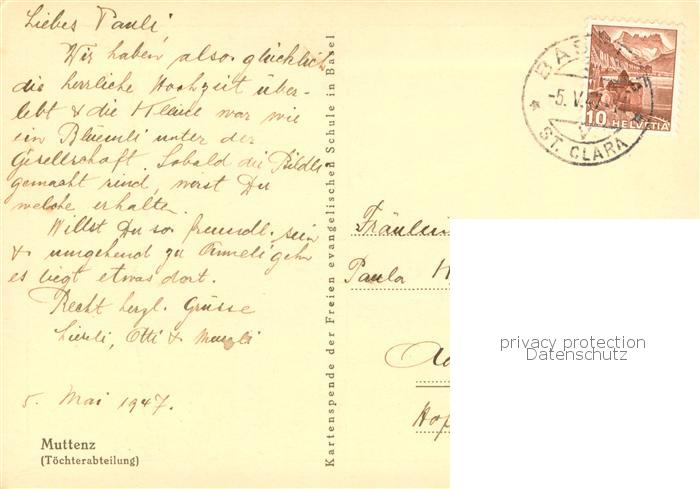 Liebes Pauli,
Wir haben also glücklich
die herrliche Hochzeit über-
lebt & die Kleine war wie
ein Blüemli unter der
Gesellschaft. Sobald die Bildli
gemacht sind, wirst Du
welche erhalten.
Willst Du so freundl. sein
& umgehend zu Anneli gehn
es liegt etwas dort.
Recht herzl. Grüsse
Otti &
5. Mai 1947.
Muttenz
(Töchterabteilung)
Kartenspende der Freien evangelischen Schule in Basel
BAS
-5.V.47
ST. CLARA
10 HELVETIA
Fräulein
Paula H
Hof
privacy protection
Datenschutz